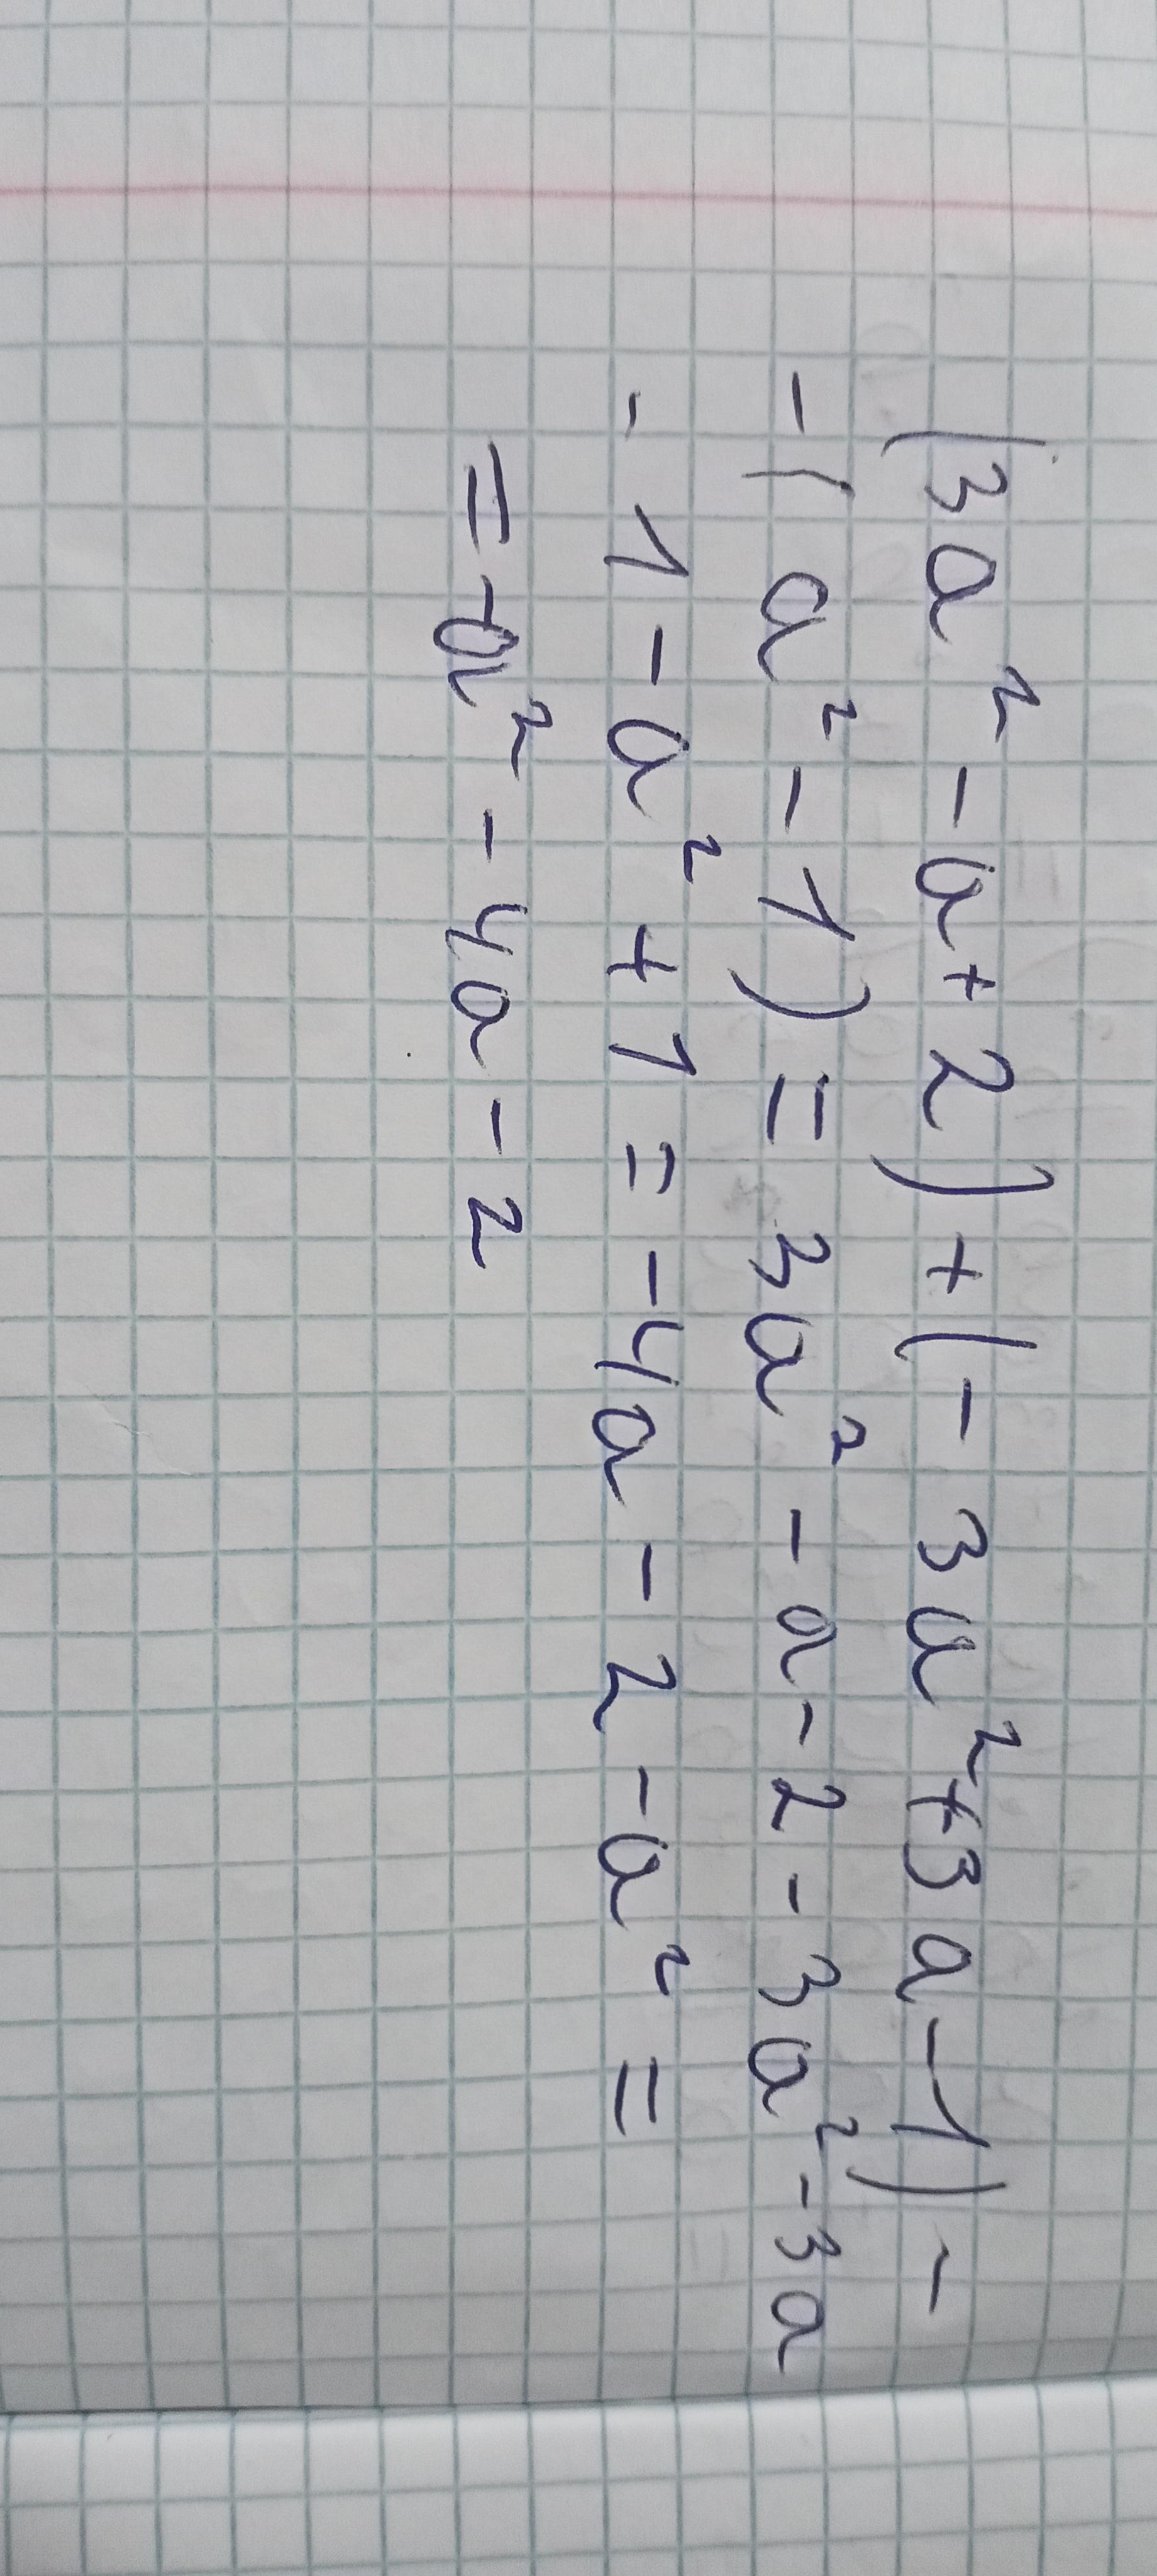 (3a² - a + 2) + (- 3a² + 3a - 1) -
- (a² - 1) = 3a² - a - 2 - 3a² - 3a
- 1 - a² + 1 = - 4a - 2 - a² =
= - a² - 4a - 2